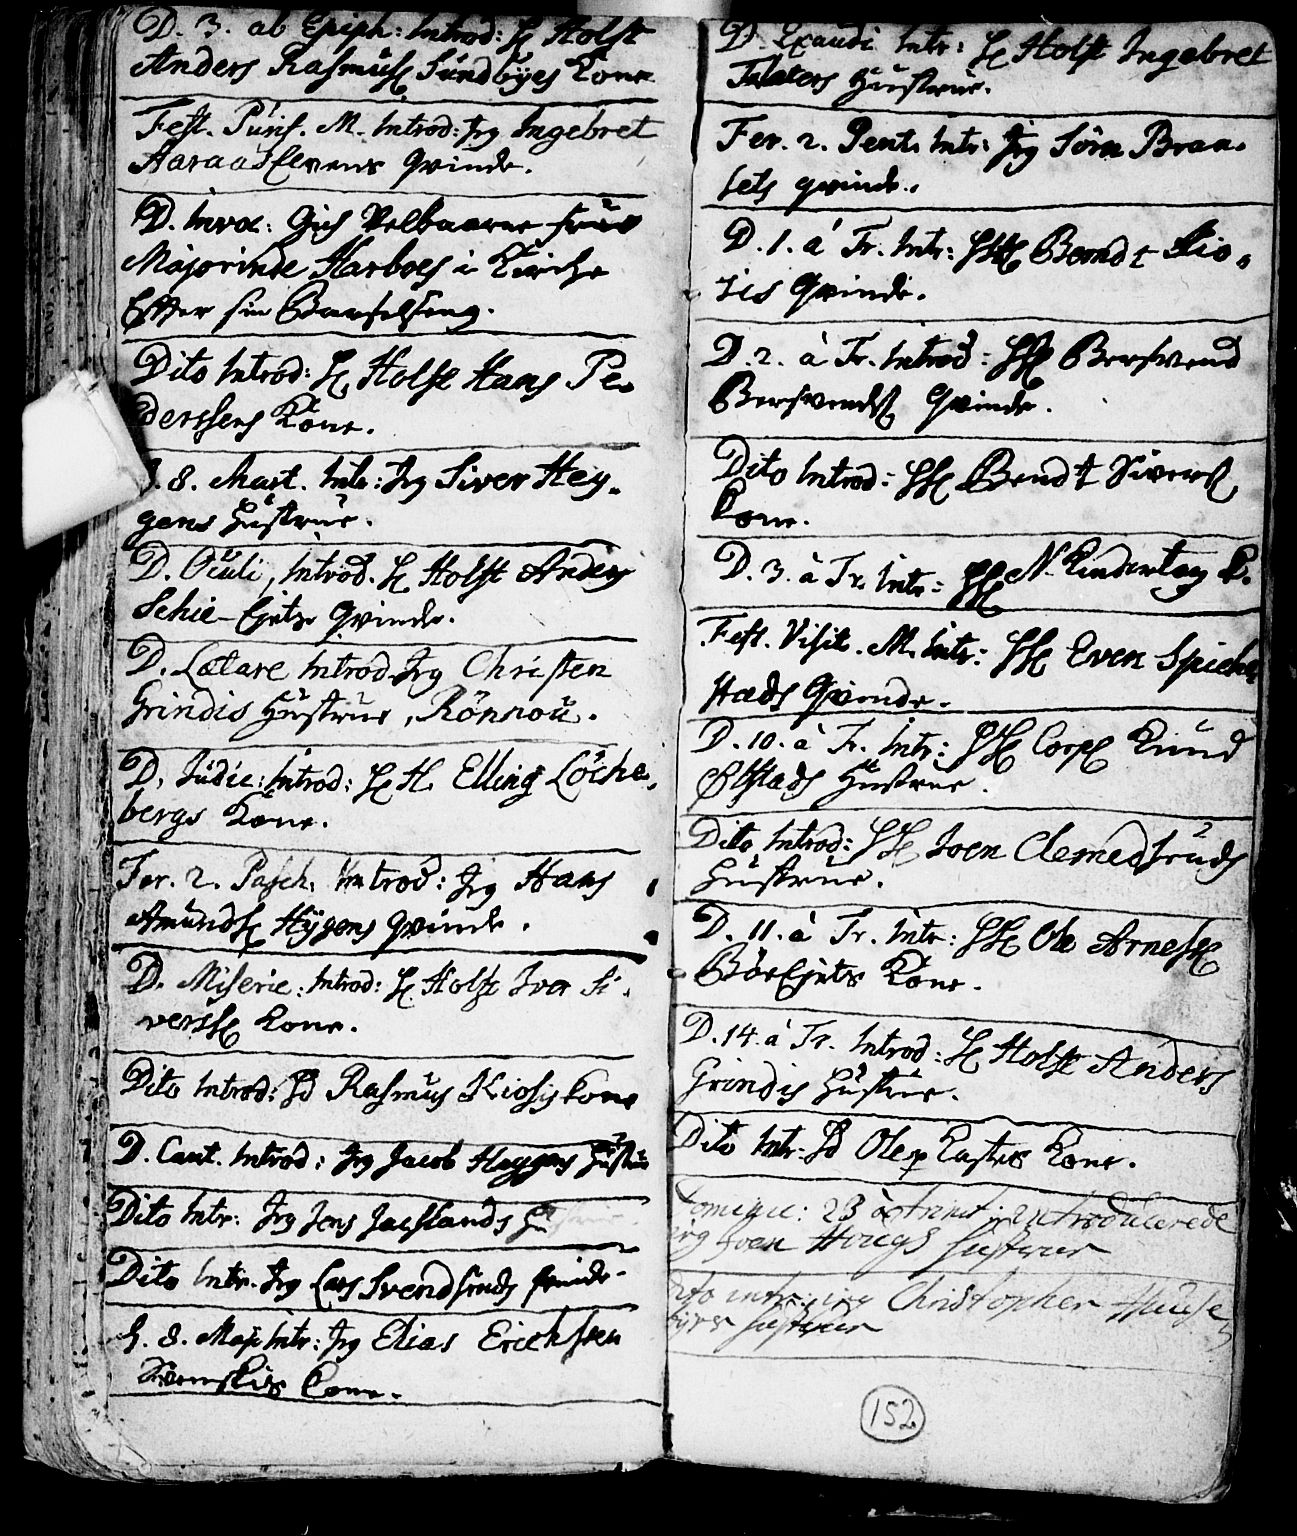 D. 3. ab Epiph: Introd: H Holst
Anders Rasmus Sundbÿes Kone
Fest. Purif. M. Introd: Jeg Ingebret
Qvinde.
D. Invoc: Gich Velbaarne frue
Majorinde Harboes i Kirche
Efter sin Barselseng.
Dito Introd: H Holst Hans Pe-
derssens Kone.
8. Mart. Intr: Jeg Siver Hey-
gens Hustrue.
D. Oculi, Introd. H Holst Anders
Schie-Eyets Qvinde.
D. Lætare Introd. Jeg Christen
Grindis Hustrue, Rönnou.
D. Judic: Introd: H H. Elling Löche-
bergs Kone.
Fer. 2. Pasch. Introd: Jeg Hans
Amunds Hÿgens qvinde.
D. Miseric: Introd: H Holst Iver Si-
verss Kone.
Dito Introd: Rasmus Kiosis kone
D. Cant. Introd: Jeg Jacob Heggens Hustrue
Dito Intr: Jeg Jens
Dito Intr. Jeg Lars Svendsruds
8. Maji Intr: Jeg Elias Erichssen
Kone.
D. Exaudi Intr: H Holst Ingebret
Hustrue.
Fer. 2. Pent. Intr: Jeg Sörn Braa-
sets qvinde.
D. 1. à Tr. Intr: Berndt Kio-
sis Qvinde.
D. 2. à Tr. Introd: Bersvend
Bersvends Qvinde.
Dito Introd: Bendt Sivers
Kone.
D. 3. à Tr. Intr: N. K.
Fest. Visit. M. Intr: Even Spich-
stads Qvinde.
D. 10. à Tr. Intr: Corp Knud
Ølstads Hustrue.
Dito Introd: Joen Clemedsruds
Hustrue.
D. 11. à Tr. Intr: Ole Arnes
Kone.
D. 14. à Tr. Introd: H Holst Anders
Grindis Hustrue.
Dito Intr: Ole Kone.
Domique: 23 à trinit: introducerede
ieg Joen Hougs hustrue
Dito intr: ieg Christopher Huuse-
byes hustrue
152